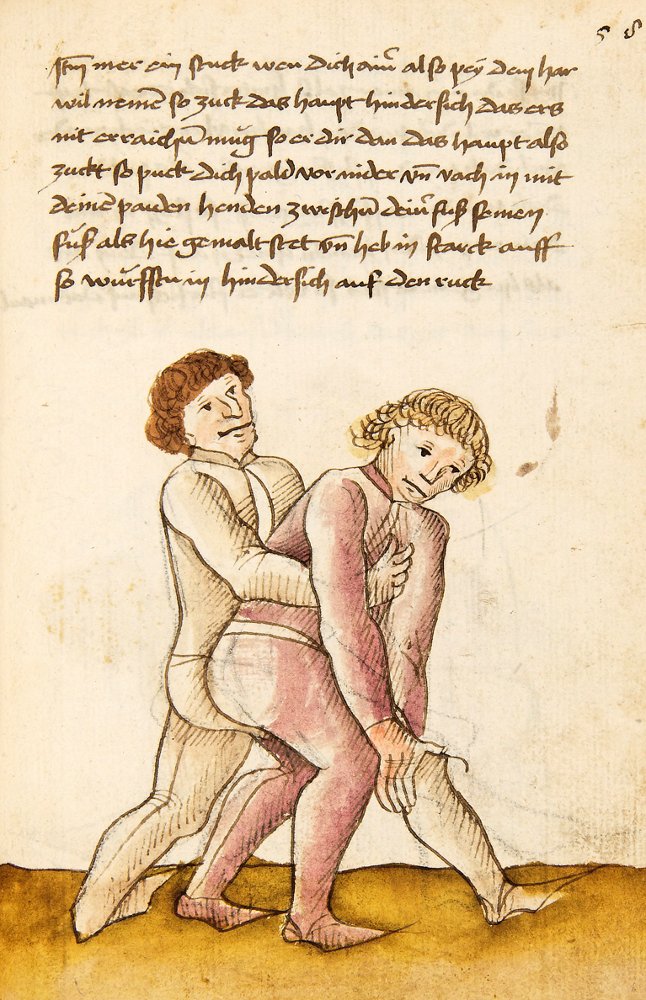 58
Itm mer ein stuck wen dich ainr̄ also pej dem har
wil nemē so zuck das haupt hindersich das ers
nit erraichn̄ mug so er dir dan das haupt also
zuckt so puck dich pald vor nider vn̄ vach in mit
deinē paiden henden zwischn̄ dein̄ fuß seinen
fuß als hie gemalt stet vn̄ heb in starck auff
so wurffstu in hindersich auf den ruck